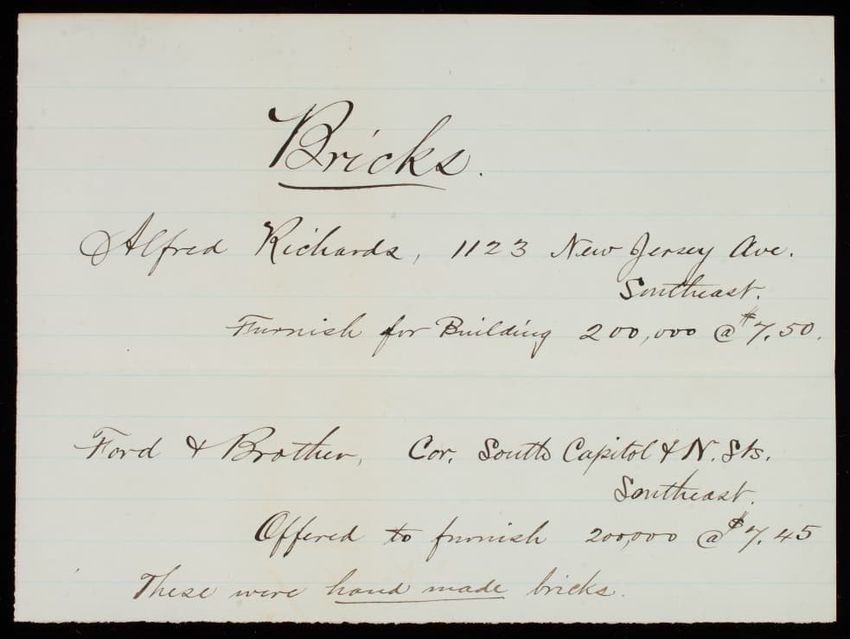 Bricks.
Alfred Richards, 1123 New Jersey Ave.
Southeast.
Furnish for Building 200,000 @ $7.50.
Ford & Brother, Cor. South Capitol & N. Sts.
Southeast.
Offered to furnish 200,000 @ $7.45
These were hand made bricks.